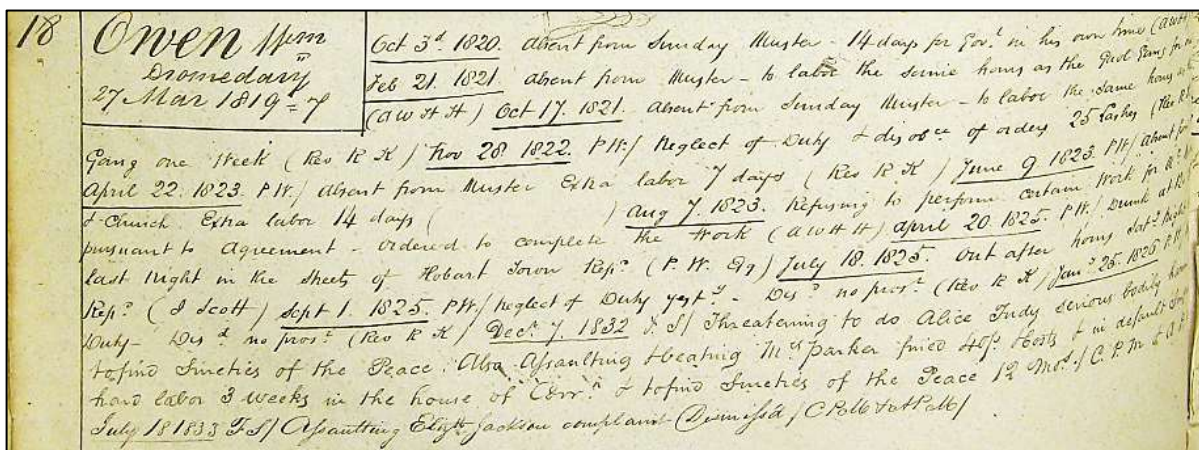 18
Owen Wm
Dromedary
27 Mar 1819 = 7
Oct 3d. 1820. absent from Sunday Muster - 14 days for Govt. in his own time (AWHH)
Feb 21. 1821. absent from Muster - to labor the same hours as the Gaol Gang for
(AWHH) Oct 17. 1821. absent from Sunday Muster - to labor the same hours as
Gang one Week (Rev R K) Nov 28. 1822. P.W./ Neglect of Duty & disobce of orders 25 Lashes (Rev R K
April 22. 1823. P.W./ absent from Muster Extra labor 7 days (Rev R K) June 9 1823. P.W/ absent from
& Church. Extra labor 14 days ( ) Aug 7. 1823. Refusing to perform certain Work for
pursuant to Agreement - ordered to complete the Work (AWHH) April 20. 1825. P.W./ Drunk
last night in the streets of Hobart Town Repd. (P. W. Esq) July 18. 1825. Out after hours Saty. night
Repd. (J Scott) Sept 1. 1825. P.W/ neglect of Duty yesty. - Disd. no prosn. (Rev R K) Jany. 25. 1826 P.W.
Duty - Disd. no prosn. (Rev R K) Decr. 7. 1832 F.S/ Threatening to do Alice Tudy serious bodily harm
to find Sureties of the Peace. Also Assaulting & beating Mrs Parker fined 40/s. Costs & in default
hard labor 3 weeks in the house of Corrn. & to find Sureties of the Peace 12 Mos. /C.P.M & A P
July 18 1833 F.S/ Assaulting Elizth Jackson complaint Dismissd /